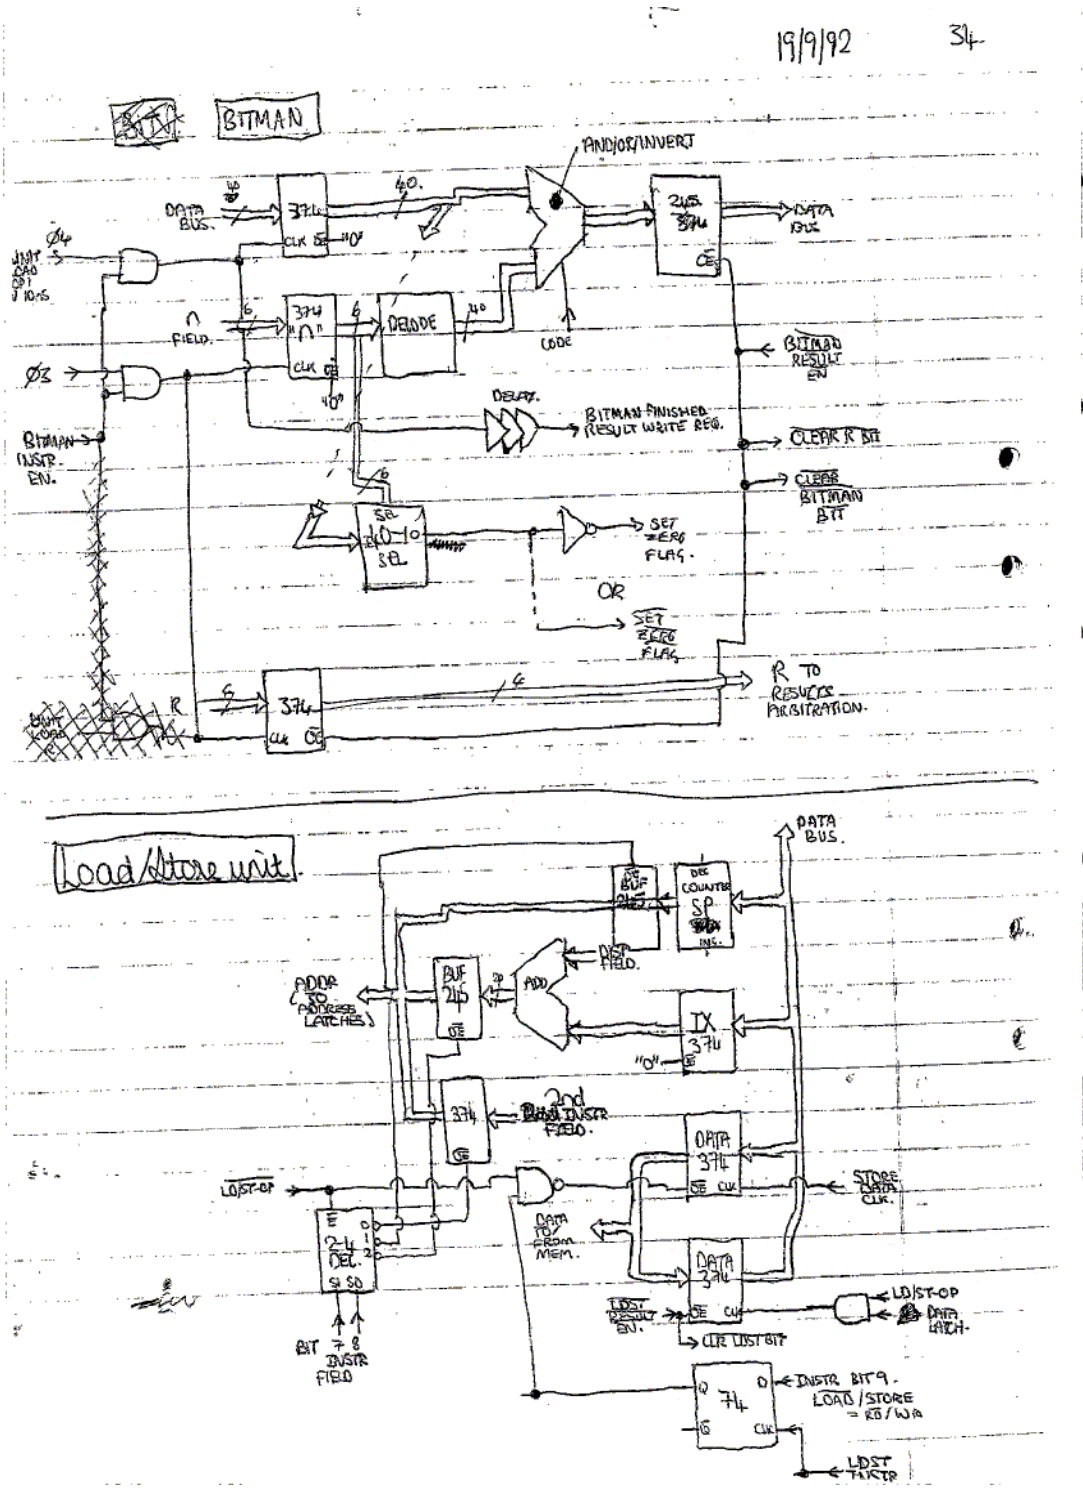 19/9/92
34
BITMAN
AND/OR/INVERT
40
DATA
BUS.
374
CLK OE
"0"
40.
245
374
OE
DATA
BUS
Ø4
UNIT
LOAD
n
FIELD.
6
374
"n"
CLK OE
"0"
6
DECODE
40
CODE
BITMAN
RESULT
EN
Ø3
DELAY.
BITMAN FINISHED
RESULT WRITE REQ.
BITMAN
INSTR.
EN.
CLEAR R BIT
CLEAR
BITMAN
BIT
6
40-10
SEL
SET
ZERO
FLAG.
OR
SET
ZERO
FLAG
R
6
374
CLK OE
6
R TO
RESULTS
ARBITRATION.
UNIT
LOAD
Load/Store unit
DATA
BUS.
OE
BUF
245
DEC
COUNTER
SP
INC.
DISP
FIELD.
ADDR
(TO
ADDRESS
LATCHES)
BUF
245
OE
20
ADD
IX
374
"0"
OE
374
OE
2nd
INSTR
FIELD.
DATA
374
OE CLK
STORE
DATA
CLK.
LD/ST-OP
E
2-4
DEC.
S1 S0
0
1
2
DATA
TO/
FROM
MEM.
DATA
374
OE CLK
LD/ST-OP
DATA
LATCH.
LDST
RESULT
EN.
CLR LDST BIT
BIT 7 8
INSTR
FIELD
Q D
74
Q CLK
INSTR BIT 9.
LOAD/STORE
= RD/WR
LDST
INSTR